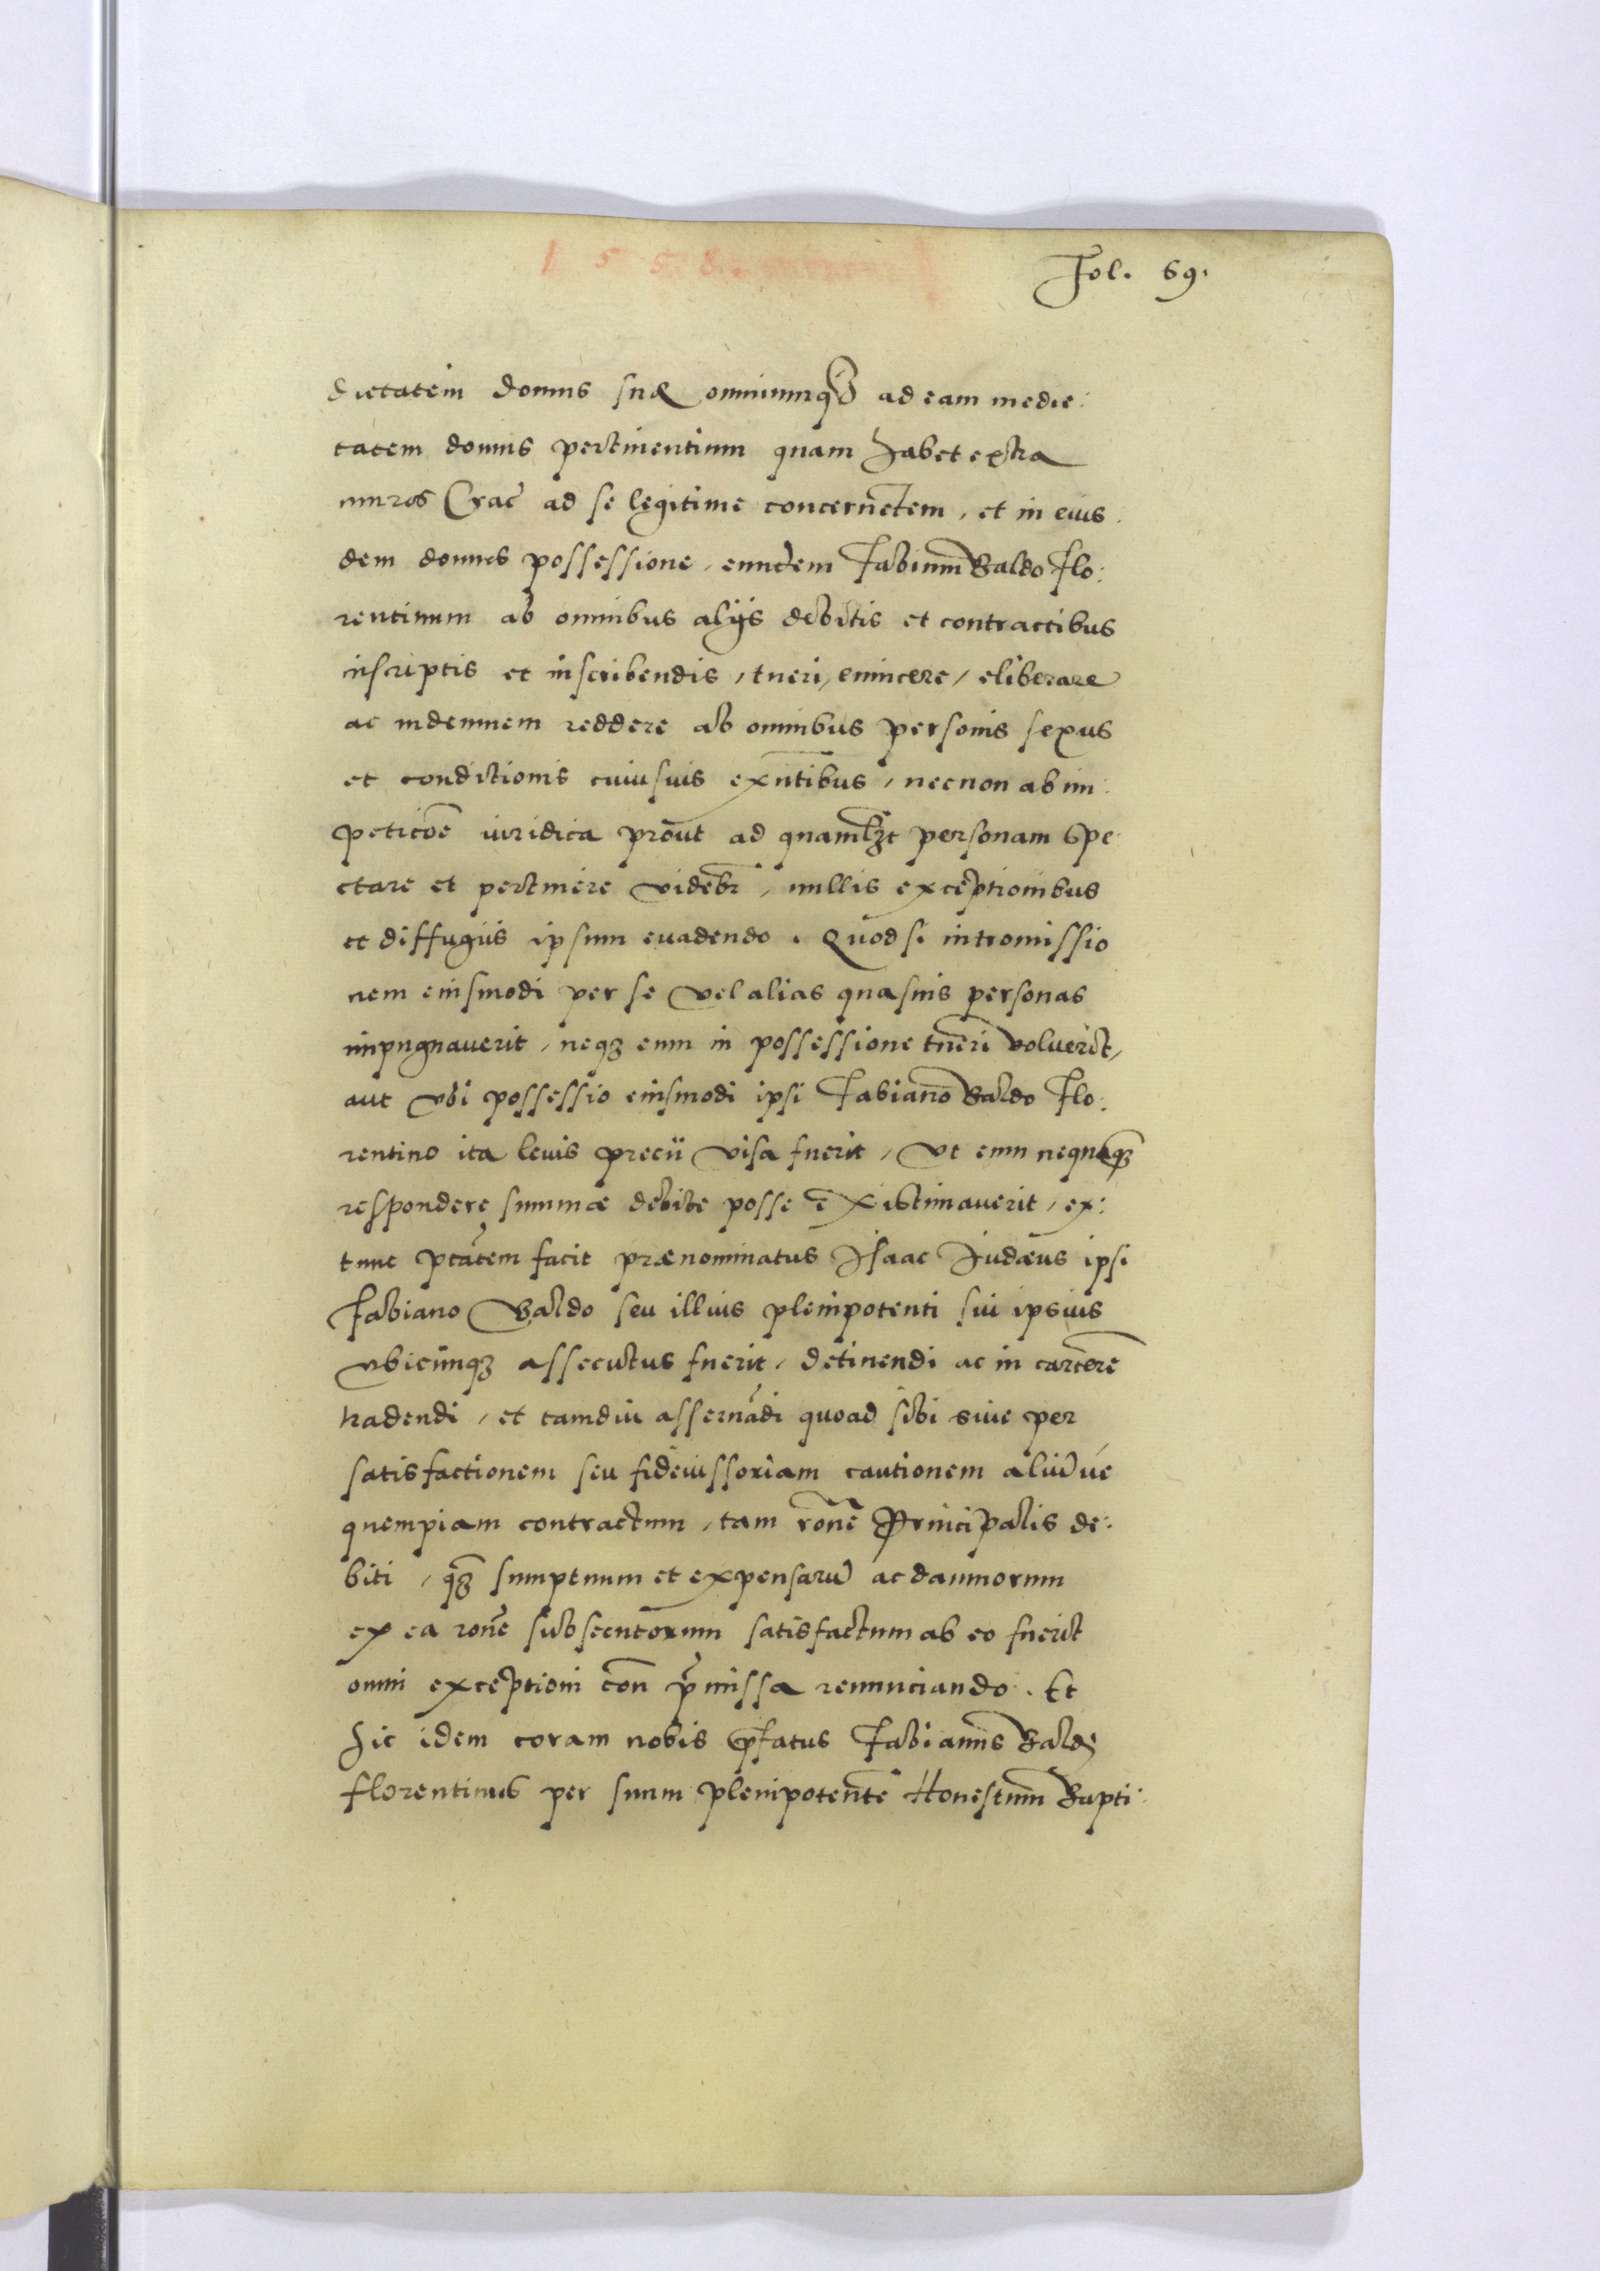 1558
Fol. 69.
dietatem domus suæ omniumq̃ ad eam medie:
tatem domus pertinentium quam habet extra
muros Crac̃ ad se legitime concern̄etem, et in eius:
dem domus possessione, eundem Fabiunm̄ Baldo Flo:
rentinum ab omnibus alijs debitis et contractibus
inscriptis et inscribendis, tueri, euincere, eliberare
ac indemnem reddere ab omnibus personis sexus
et conditionis cuiusuis exñtibus, necnon ab im:
peticõe iuridica prout ad quamlꝫt personam spe
ctare et pertinere videbr̃, nullis exceptionibus
et diffugiis ipsum euadendo. Quod si intromissio
nem eiusmodi per se vel alias quasuis personas
impugnauerit, neqꝫ eum in possessione tueri voluerit,
aut vbi possessio eiusmodi ipsi Fabiano Baldo Flo:
rentino ita leuis precii visa fuerit, vt eum nequaqꝫ
respondere summæ debite posse existimauerit, ex:
tunc ptãtem facit prænominatus Isaac Judæus ipsi
Fabiano Baldo seu illius plenipotenti sui ipsius
vbicunqꝫ assecutus fuerit, detinendi ac in carcerē
tradendi, et tamdiu asseruãdi quoad sibi siue per
satisfactionem seu fideiussoriam cautionem aliũue
quempiam contractum, tam rõne Principalis de:
biti, qꝫ sumptuum et expensarũ ac damnorum
ex ea rõne subsecutorum satisfactum ab eo fuerit
omni exceptioni cõn p̃missa renunciando. Et
Hic idem coram nobis p̃fatus Fabianus Baldi
florentinus per suum plenipotentē Honestum Bapti: